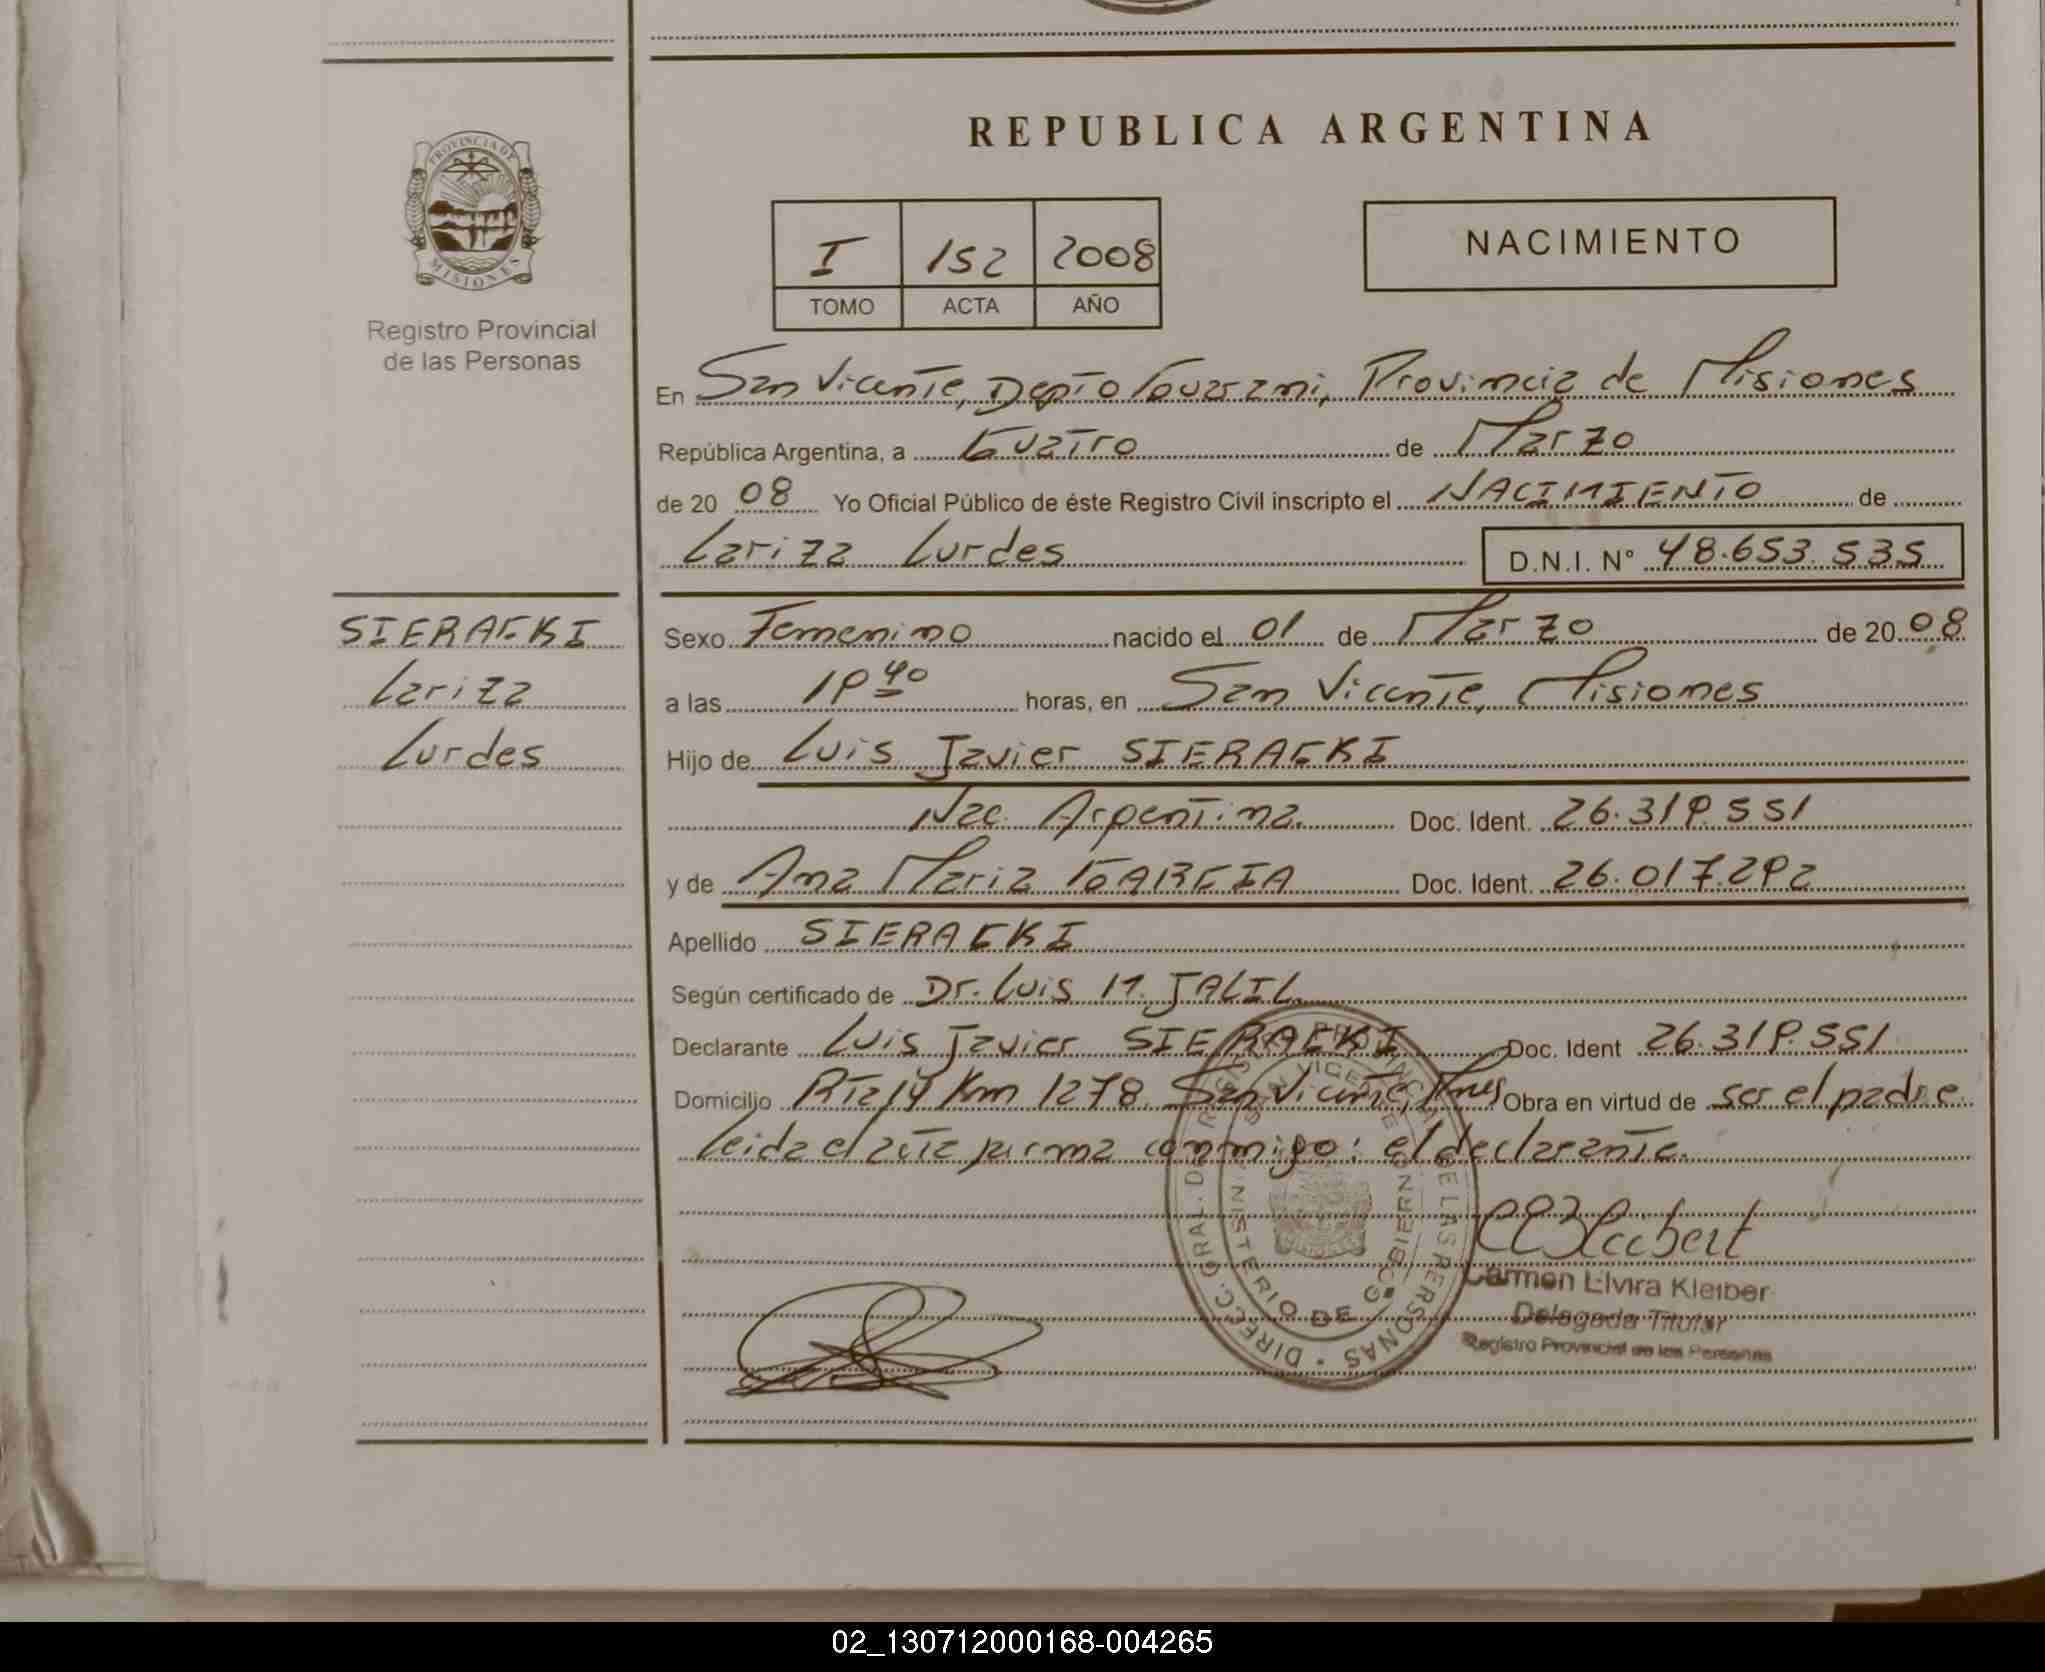 REPUBLICA ARGENTINA
PROVINCIA DE MISIONES
Registro Provincial
de las Personas
I 152 2008
TOMO ACTA AÑO
NACIMIENTO
En San Vicente, Depto Guarani, Provincia de Misiones
República Argentina, a Cuatro de Marzo
de 20 08 Yo Oficial Público de éste Registro Civil inscripto el NACIMIENTO de
Lariza Lurdes D.N.I. N° 48.653.535
SIERACKI
Lariza
Lurdes
Sexo Femenino nacido el 01 de Marzo de 20 08
a las 19 40 horas, en San Vicente, Misiones
Hijo de Luis Javier SIERACKI
Nac. Argentina. Doc. Ident. 26.319.551
y de Ana Maria GARCIA Doc. Ident. 26.017.292
Apellido SIERACKI
Según certificado de Dr. Luis M. JALIL
Declarante Luis Javier SIERACKI Doc. Ident 26.319.551
Domicilio Rta 14 Km 1278. San Vicente, Mnes Obra en virtud de ser el padre
leida el acta firma conmigo: el declarante.
DIRECC. GRAL. DEL REGISTRO PROVINCIAL DE LAS PERSONAS
SAN VICENTE
MINISTERIO DE GOBIERNO
Carmen Elvira Kleiber
Delegada Titular
Registro Provincial de las Personas
02_130712000168-004265